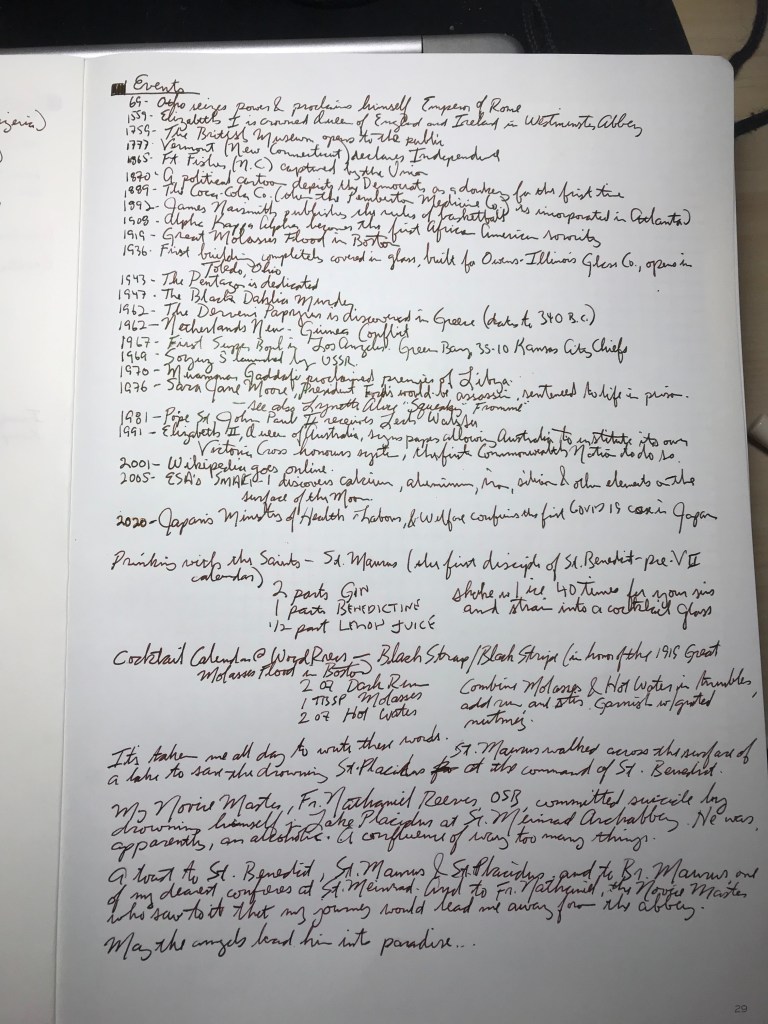 Events
69 - Otho seizes power & proclaims himself Emperor of Rome
1559 - Elizabeth I is crowned Queen of England and Ireland in Westminster Abbey
1759 - The British Museum opens to the public
1777 - Vermont (New Connecticut) declares Independence
1865 - Ft Fisher (N.C) captured by the Union
1870 - A political cartoon depicts the Democrats as a donkey for the first time
1889 - The Coca-Cola Co. (then the Pemberton Medicine Co.) is incorporated in Atlanta
1892 - James Naismith publishes the rules of basketball
1908 - Alpha Kappa Alpha becomes the first Africa American sorority
1919 - Great Molasses Flood in Boston
1936 - First building completely covered in glass, built for Owens-Illinois Glass Co., opens in
Toledo, Ohio
1943 - The Pentagon is dedicated
1947 - The Black Dahlia Murder
1962 - The Derveni Papyrus is discovered in Greece (dates to 340 B.C.)
1962 - Netherlands New-Guinea Conflict
1967 - First Super Bowl in Los Angeles. Green Bay 35-10 Kansas City Chiefs
1969 - Soyuz 5 launched by USSR
1970 - Muammar Gaddafi proclaimed premier of Libya
1976 - Sara Jane Moore, President Ford's would-be assassin, sentenced to life in prison.
- See also Lynette Alice "Squeaky" Fromme
1981 - Pope St. John Paul II receives Lech Walesa
1991 - Elizabeth II, Queen of Australia, signs papers allowing Australia to institute its own
Victoria Cross honours system, the first Commonwealth Nation to do so.
2001 - Wikipedia goes online.
2005 - ESA's SMART-1 discovers calcium, aluminum, iron, silicon & other elements on the
surface of the Moon.
2020 - Japan's Ministry of Health, Labour, & Welfare confirms the first COVID 19 case in Japan
Drinking with the Saints - St. Maurus (the first disciple of St. Benedict - pre-V II
calendar)
2 parts GIN
1 part BENEDICTINE
1/2 part LEMON JUICE
shake w/ ice 40 times for your sins
and strain into a cocktail glass
Cocktail Calendar @ WordPress - Black Strap/Black Stripe (in honor of the 1919 Great
Molasses Flood in Boston
2 oz Dark Rum
1 TBSP Molasses
2 oz Hot Water
Combine Molasses & Hot Water in tumbler,
add rum and stir. Garnish w/ grated
nutmeg.
It's taken me all day to write these words. St. Maurus walked across the surface of
a lake to save the drowning St. Placidus at the command of St. Benedict.
My Novice Master, Fr. Nathaniel Reeves, OSB, committed suicide by
drowning himself in Lake Placidus at St. Meinrad Archabbey. He was,
apparently, an alcoholic. A confluence of way too many things.
A toast to St. Benedict, St. Maurus & St. Placidus, and to Br. Maurus, one
of my dearest confreres at St. Meinrad. And to Fr. Nathaniel, the Novice Master
who saw to it that my journey would lead me away from the abbey.
May the angels lead him into paradise...
29